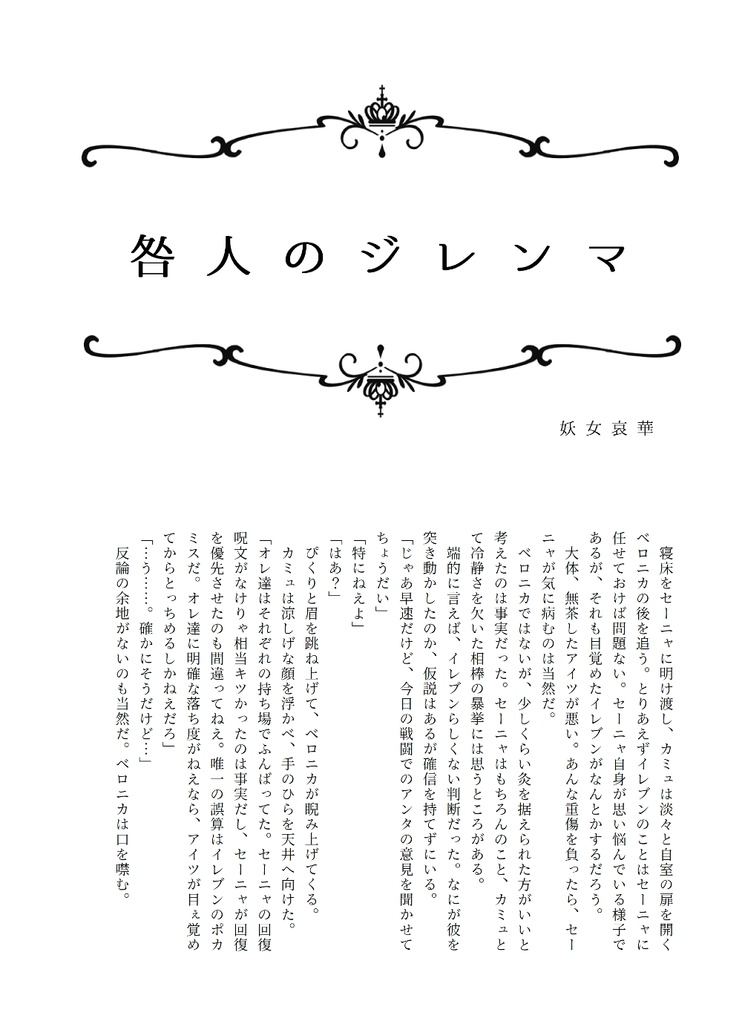 咎人のジレンマ
妖女哀華
寝床をセーニャに明け渡し、カミュは淡々と自室の扉を開く
ベロニカの後を追う。とりあえずイレブンのことはセーニャに
任せておけば問題ない。セーニャ自身が思い悩んでいる様子で
あるが、それも目覚めたイレブンがなんとかするだろう。
大体、無茶したアイツが悪い。あんな重傷を負ったら、セー
ニャが気に病むのは当然だ。
ベロニカではないが、少しくらい灸を据えられた方がいいと
考えたのは事実だった。セーニャはもちろんのこと、カミュと
て冷静さを欠いた相棒の暴挙には思うところがある。
端的に言えば、イレブンらしくない判断だった。なにが彼を
突き動かしたのか、仮説はあるが確信を持てずにいる。
「じゃあ早速だけど、今日の戦闘でのアンタの意見を聞かせて
ちょうだい」
「特にねえよ」
「はあ？」
ぴくりと眉を跳ね上げて、ベロニカが睨み上げてくる。
カミュは涼しげな顔を浮かべ、手のひらを天井へ向けた。
「オレ達はそれぞれの持ち場でふんばってた。セーニャの回復
呪文がなけりゃ相当キツかったのは事実だし、セーニャが回復
を優先させたのも間違ってねえ。唯一の誤算はイレブンのポカ
ミスだ。オレ達に明確な落ち度がねえなら、アイツが目ぇ覚め
てからとっちめるしかねえだろ」
「…う……。確かにそうだけど…」
反論の余地がないのも当然だ。ベロニカは口を噤む。